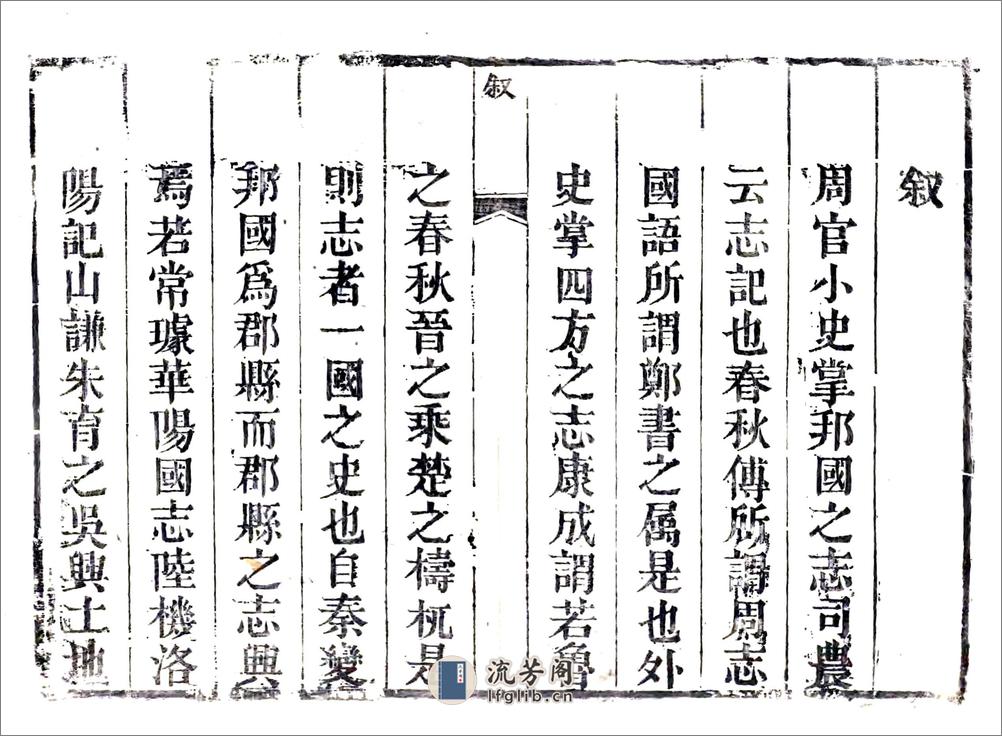 叙
周官小史掌邦國之志司農
云志記也春秋傅所謂周志
國語所謂鄭書之属是也外
史掌四方之志康成謂若魯
叙
之春秋晉之乘楚之檮杌是
則志者一國之史也自秦變
邦國爲郡縣而郡縣之志興
焉若常璩華陽國志陸機洛
陽記山謙朱育之吳興土地
流芳阁
lfglib.cn